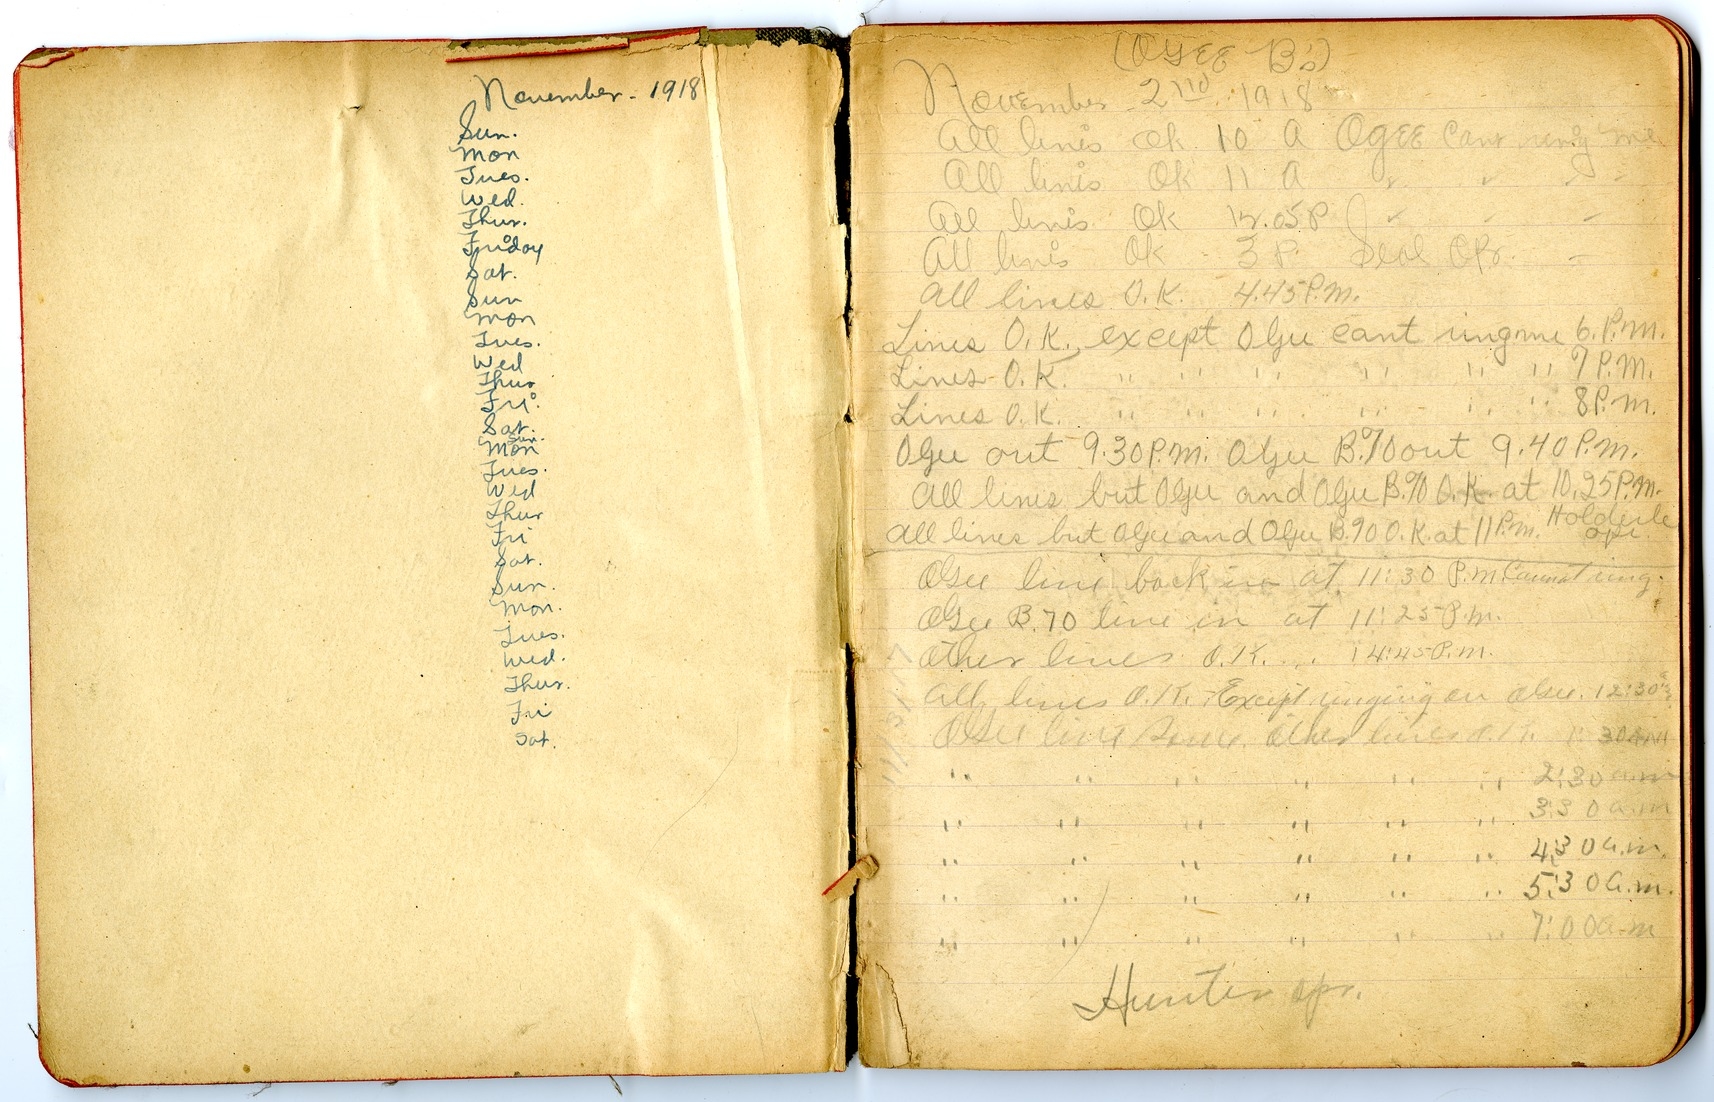 November - 1918
Sun.
Mon
Tues.
Wed.
Thur.
Friday
Sat.
Sun
Mon
Tues.
Wed
Thur
Fri.
Sat.
Sun.
Mon
Tues.
Wed
Thur
Fri
Sat.
Sun.
Mon.
Tues.
Wed.
Thur.
Fri
Sat.
(OGEE B's)
November - 2nd. 1918
All lines Ok 10 A OgEE Cant ring me
All lines Ok 11 A " " " "
All lines Ok 12.05 P " " "
All lines Ok 3 P. Opr.
All lines O.K. 4.45 P.M.
Lines O.K. except OGee cant ring me 6. P.M.
Lines - O.K. " " " " " " 7 P.M.
Lines O.K. " " " " " " 8 P.M.
OGee out 9.30 P.M. OGee B.70 out 9.40 P.M.
All lines but OGee and OGee B.70 O.K. at 10.25 P.M.
All lines but OGee and OGee B.70 O.K. at 11 P.M. opr.
OGee line back in at 11:30 P.M. Cannot ring.
OGee B.70 line in at 11:25 P.M.
Other lines O.K.
All lines O.K. Except ringing on OGee. 12:30
OGee line Other lines O.K. 1:30 AM
" " " " " " 2:30 a.m
" " " " " " 3:30 a.m
" " " " " " 4:30 a.m.
" " " " " " 5:30 a.m.
" " " " " " 7:00 a.m
Hunter opr.